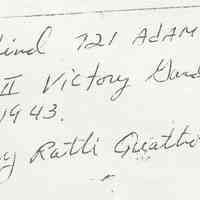 hind 721 ADAM
II Victory Gard
1943.
y Ratti Quattro